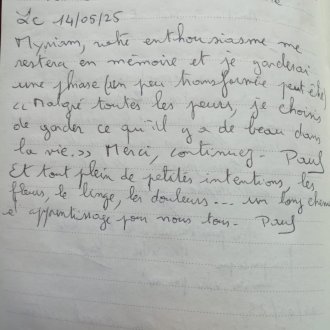 Le 14/05/25
Myriam, votre enthousiasme me
restera en mémoire et je garderai
une phrase (un peu transformée peut-être)
« Malgré toutes les peurs, je choisis
de garder ce qu'il y a de beau dans
la vie. » Merci, continuez - Paul
Et tout plein de petites intentions, les
fleurs, le linge, les douleurs... un long chemin
d'apprentissage pour nous tous - Paul